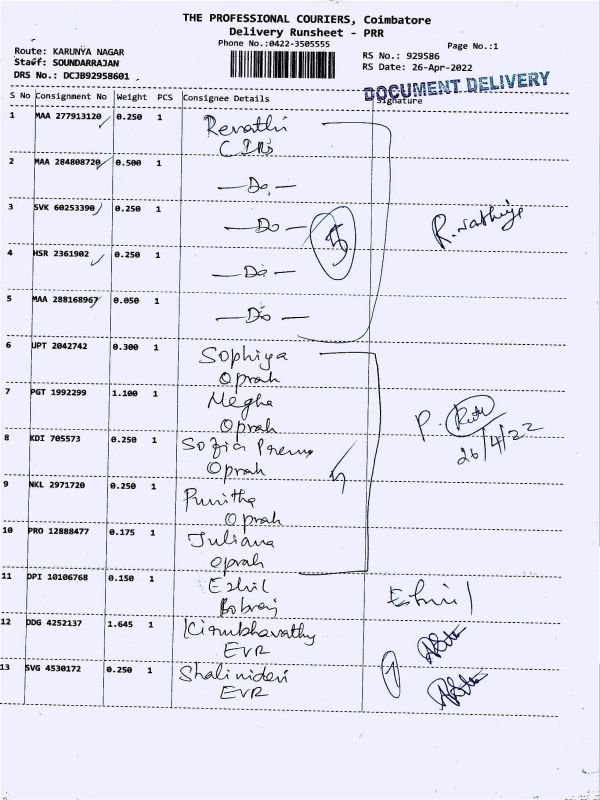 THE PROFESSIONAL COURIERS, Coimbatore
Delivery Runsheet - PRR
Phone No.:0422-3505555
Page No.:1
Route: KARUNYA NAGAR
Staff: SOUNDARRAJAN
DRS No.: DCJB92958601
RS No.: 929586
RS Date: 26-Apr-2022
DOCUMENT DELIVERY
S No Consignment No Weight PCS Consignee Details Signature
1 MAA 277913120 0.250 1 Revathi
2 MAA 284808720 0.500 1 —Do—
3 SVK 60253390 0.250 1 —Do—
5
4 HSR 2361902 0.250 1 —Do—
5 MAA 288168967 0.050 1 —Do—
6 UPT 2042742 0.300 1 Sophiya
Oprah
7 PGT 1992299 1.100 1 Megha
Oprah
P.
26/4/22
8 KDI 705573 0.250 1 Sofia Prema
Oprah
9 NKL 2971720 0.250 1 Punitha
Oprah
10 PRO 12888477 0.175 1 Juliana
Oprah
11 DPI 10106768 0.150 1 Ezhil
12 DDG 4252137 1.645 1
EVR
1
13 SVG 4530172 0.250 1 Shalinidevi
EVR